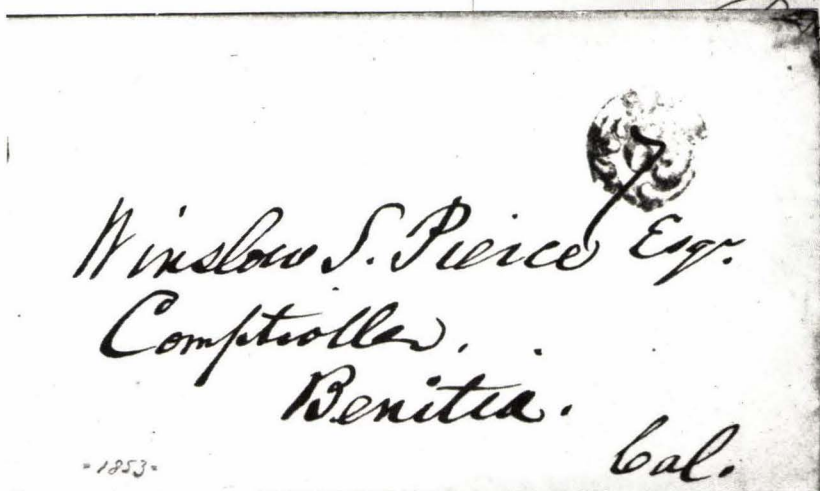 7
Winslow S. Pierce Esqr.
Comptroller.
Benitia.
Cal.
=1853=